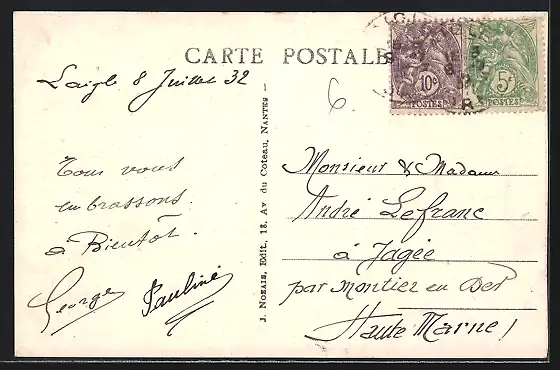 CARTE POSTALE
Laigle 8 Juillet 32
Tous vous
embrassons.
à Bientôt.
George Pauline
J. NOZAIS, Edit., 18, Av. du Coteau, NANTES -
6
10c
POSTES
5c
POSTES
Monsieur & Madame
André Lefranc
à Jagée
par Montier en Der
Haute Marne